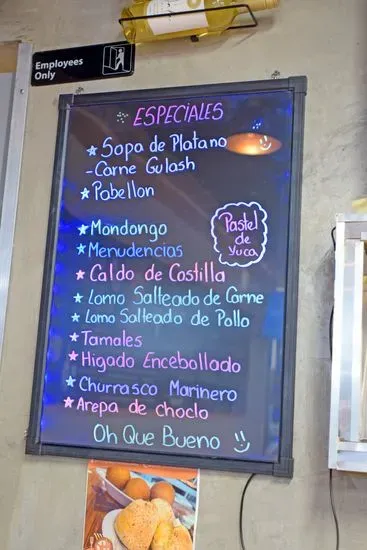 Employees
Only
ESPECIALES
Sopa de Platano
-Carne Gulash
Pabellon
Mondongo
Menudencias
Pastel
de
Yuca
Caldo de Costilla
Lomo Salteado de Carne
Lomo Salteado de Pollo
Tamales
Higado Encebollado
Churrasco Marinero
Arepa de choclo
Oh Que Bueno